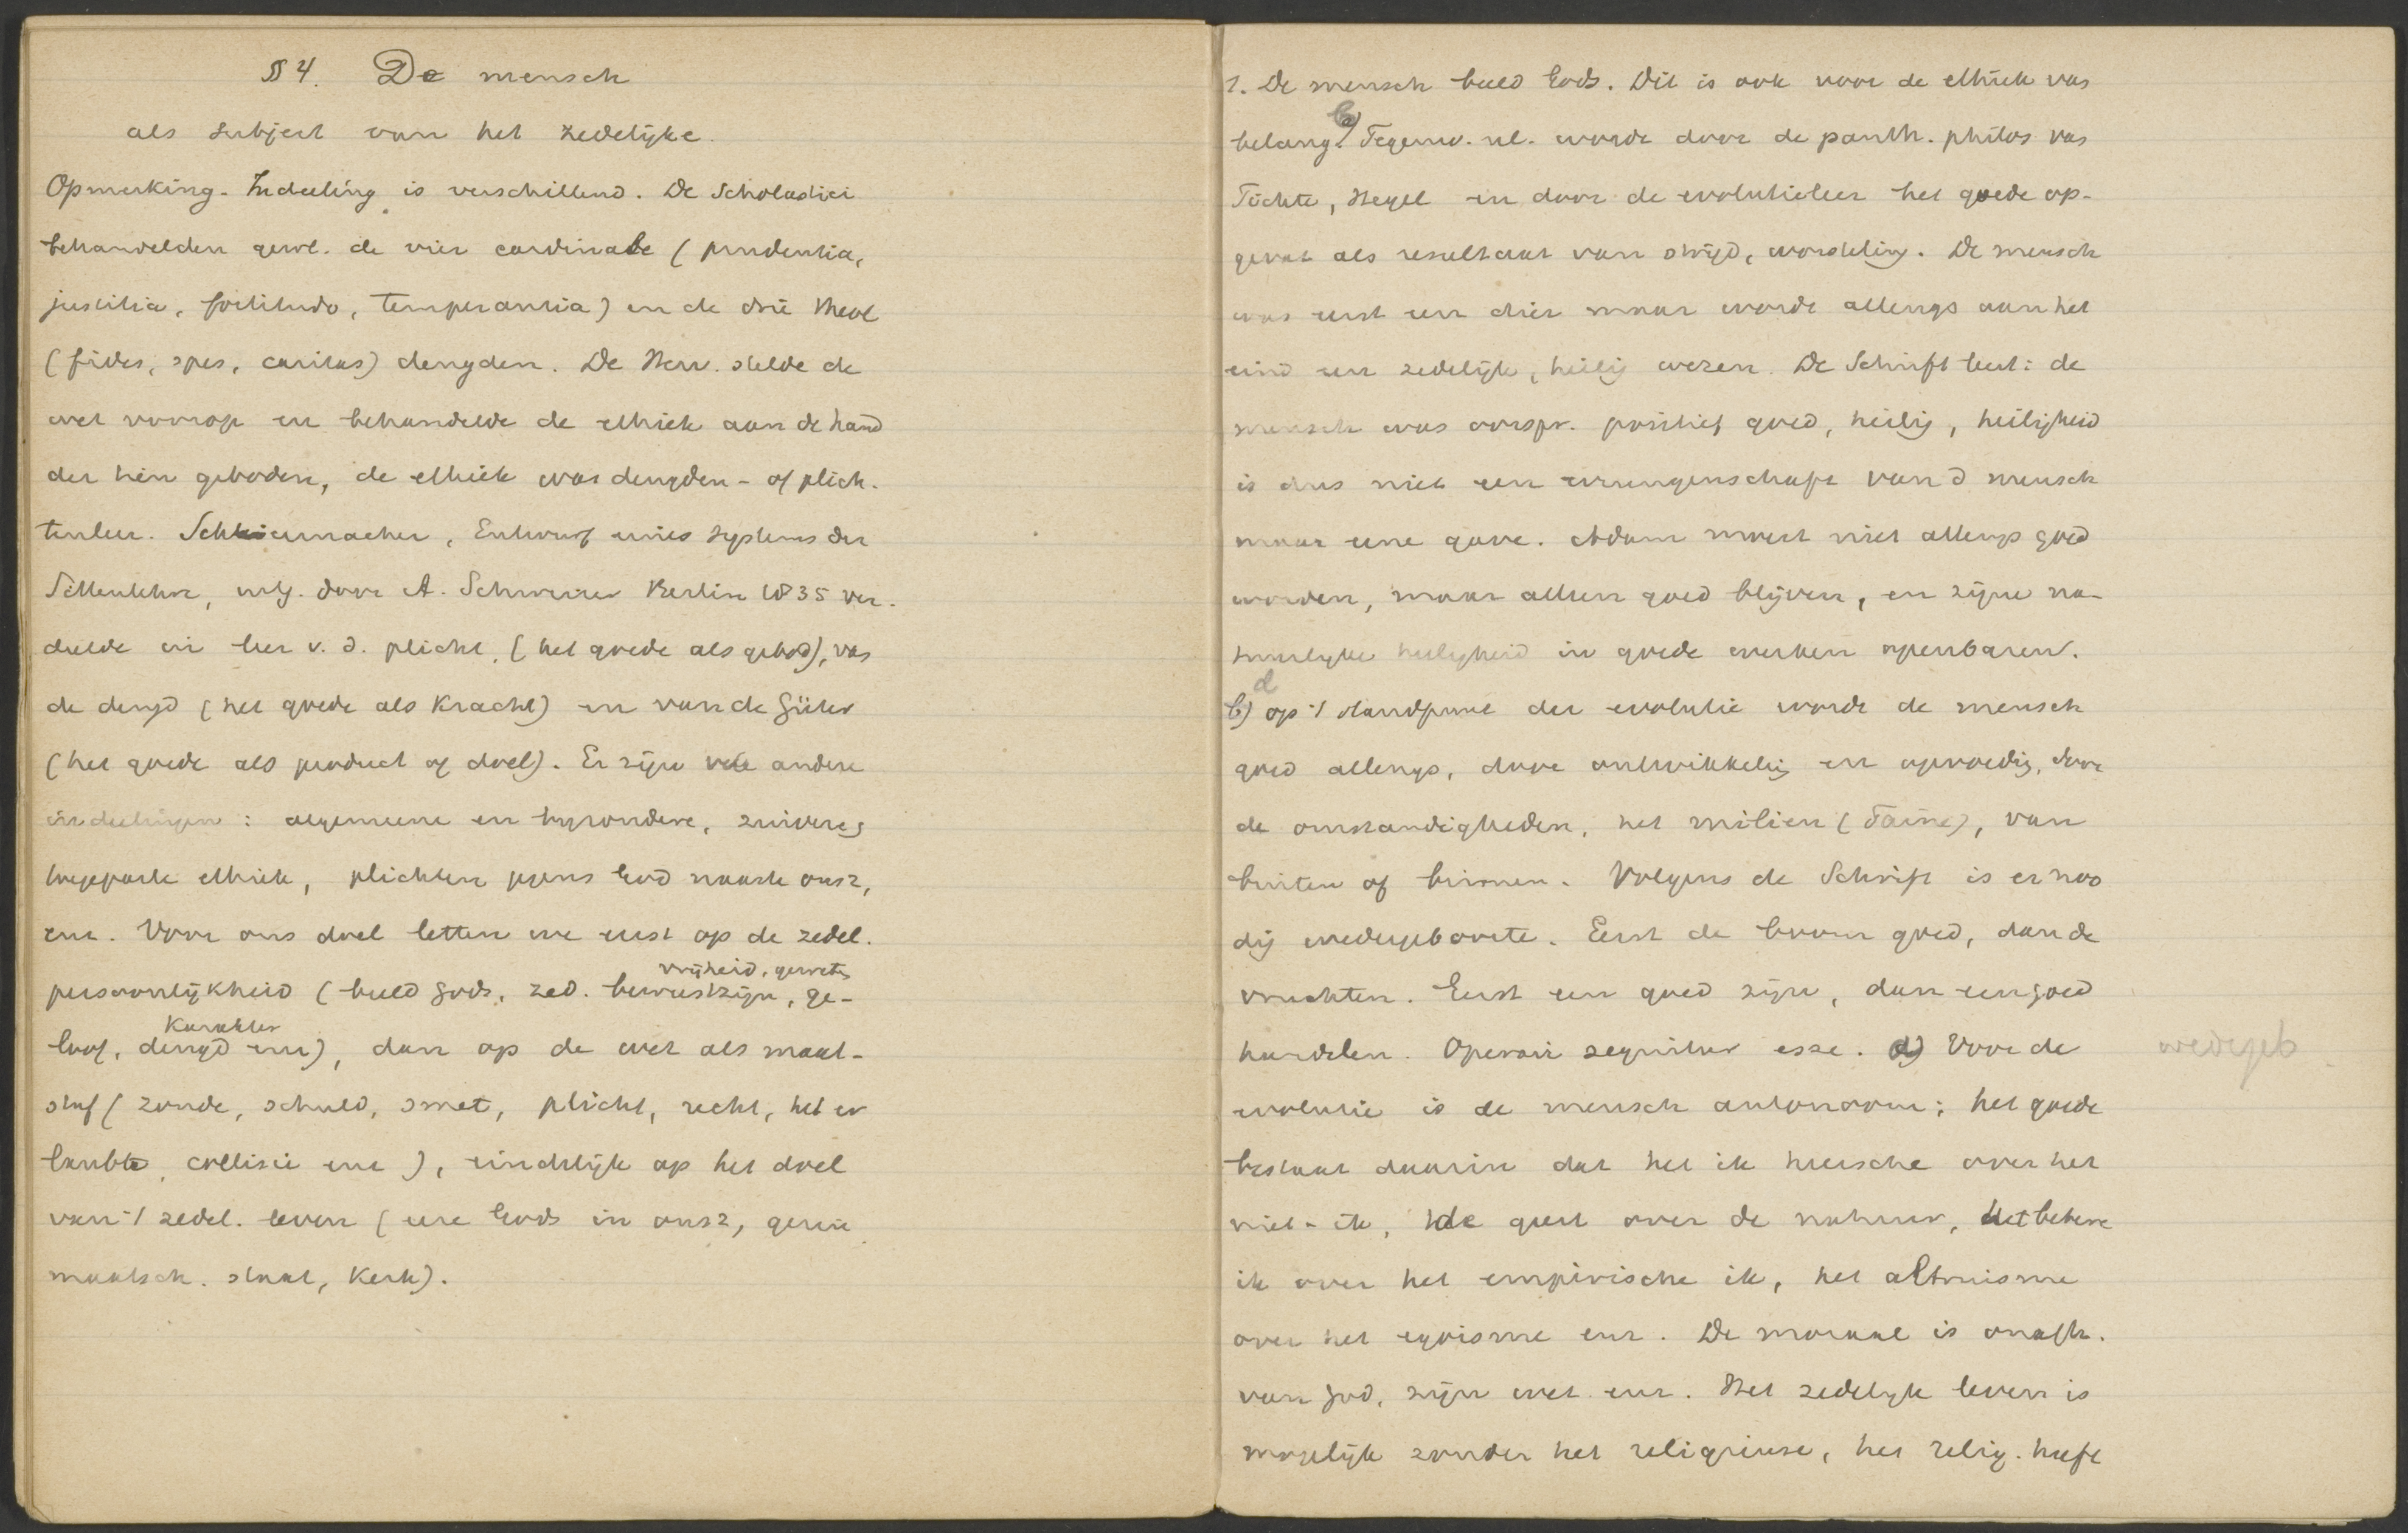 § 4. De mensch
als subject van het zedelijke.
Opmerking. Indeeling is verschillend. De Scholastici
behandelden gew. de vier cardinale (prudentia,
justitia, fortitudo, temperantia) en de drie theol
(fides, spes, caritas) deugden. De Herv. stelde de
wet voorop en behandelde de ethiek aan de hand
der tien geboden, de ethiek was deugden- of plich-
tenleer. Schleiermacher, Entwurf eines Systems der
Sittenlehre, uitg. door A. Schweizer Berlin 1835 ver-
deelde in leer v. d. plicht, (het goede als gebod), van
de deugd (het goede als kracht) en van de Güter
(het goede als product of doel). Er zijn vele andere
indeelingen: algemeene en byzondere, zuivere,
toegepaste ethiek, plichten jegens God naaste onsz,
enz. Voor ons doel letten we eerst op de zedel.
vrijheid, geweten
persoonlijkheid (beeld Gods, zed. bewustzijn, ge-
karakter
loof, deugd enz), dan op de wet als maat-
staf (zonde, schuld, smet, plicht, recht, het er
laubte, collisie enz), eindelijk op het doel
van 't zedel. leven (eere Gods in onsz, gezin
maatsch. staat, kerk).
1. De mensch beeld Gods. Dit is ook voor de ethiek van
belang. Tegenw. nl. wordt door de panth. philos van
Fichte, Hegel en door de evolutieleer het goede op-
gevat als resultaat van strijd, worsteling. De mensch
was eerst een dier maar wordt allengs aan het
eind een zedelijk, heilig wezen. De Schrift leert: de
mensch was oorspr. positief goed, heilig, heiligheid
is dus niet een errungenschaft van d mensch
maar eene gave. Adam moest niet allengs goed
worden, maar alleen goed blijven, en zijne na-
tuurlyke heiligheid in goede werken openbaren.
d
b) op 't standpunt der evolutie wordt de mensch
goed allengs, door ontwikkelig en opvoedig, door
de omstandigheden, het milieu (Taine), van
buiten of binnen. Volgens de Schrift is er noo
dig wedergeboorte. Eerst de boom goed, dan de
vruchten. Eerst een goed zijn, dan een goed
handelen. Operari sequitur esse. Voor de
wedergeb
evolutie is de mensch autonoom; het goede
bestaat daarin dat het ik heersche over het
niet-ik, de geest over de natuur, het betere
ik over het empirische ik, het altruisme
over het egoisme enz. De moraal is onafh.
van God, zijn wet enz. Het zedelyk leven is
mogelijk zonder het religieuse, het relig. heeft